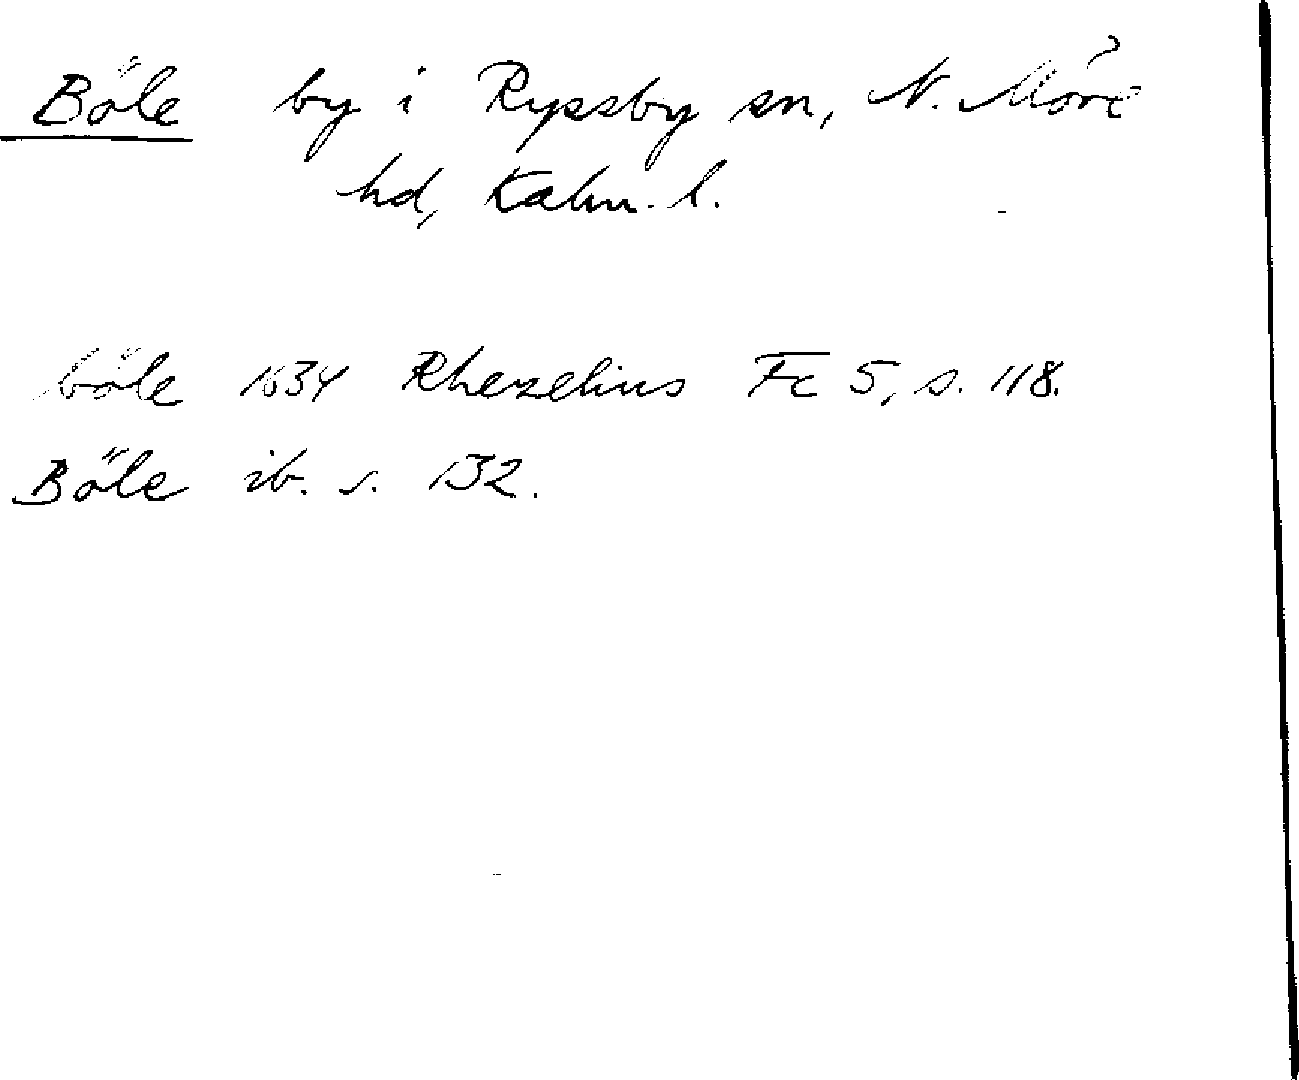 Böle by i Ryssby sn, N. Möre
hd, Kalm. l.
böle 1634 Rhezelius Fc 5, s. 118.
Böle ib. s. 132.